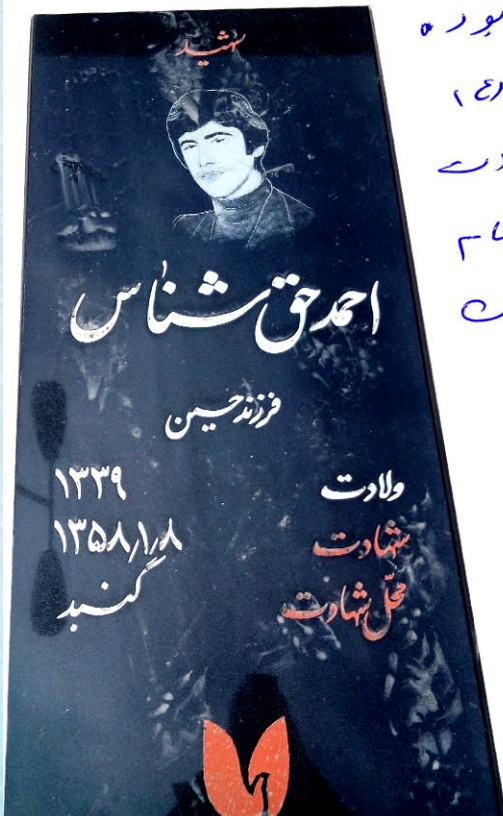 شهید
احمد حق شناس
فرزند حسین
ولادت ۱۳۳۹
شهادت ۱۳۵۸٫۱٫۸
محلّ شهادت گنبد